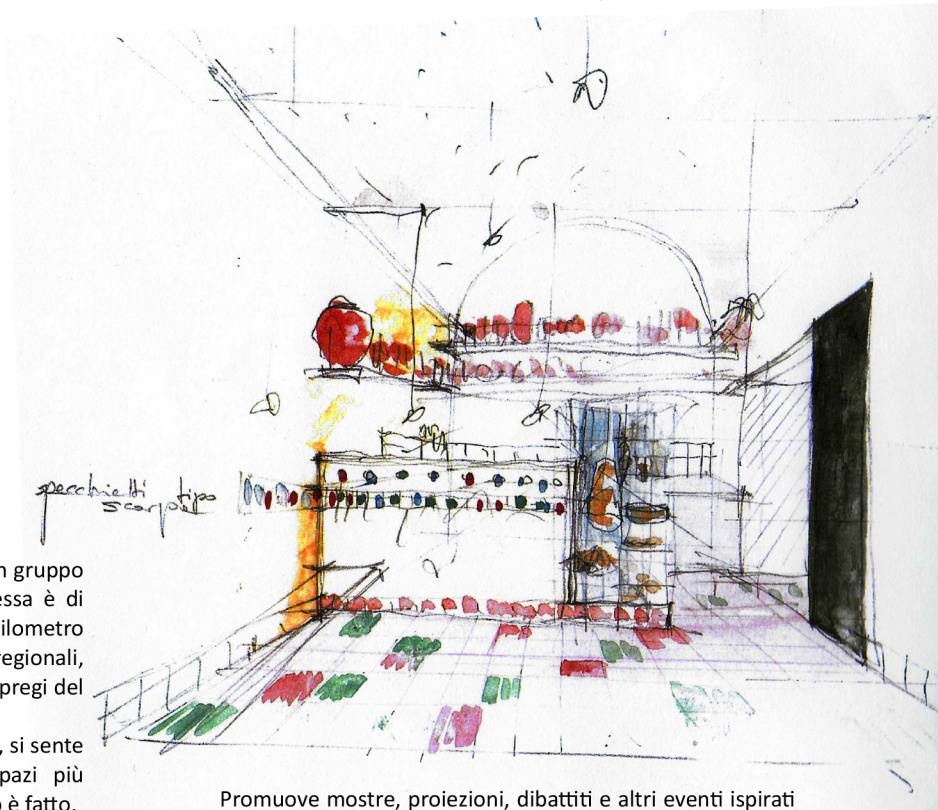 specchietti tipo
n gruppo
essa è di
ilometro
regionali,
pregi del
, si sente
pazi più
o è fatto.
Promuove mostre, proiezioni, dibattiti e altri eventi ispirati